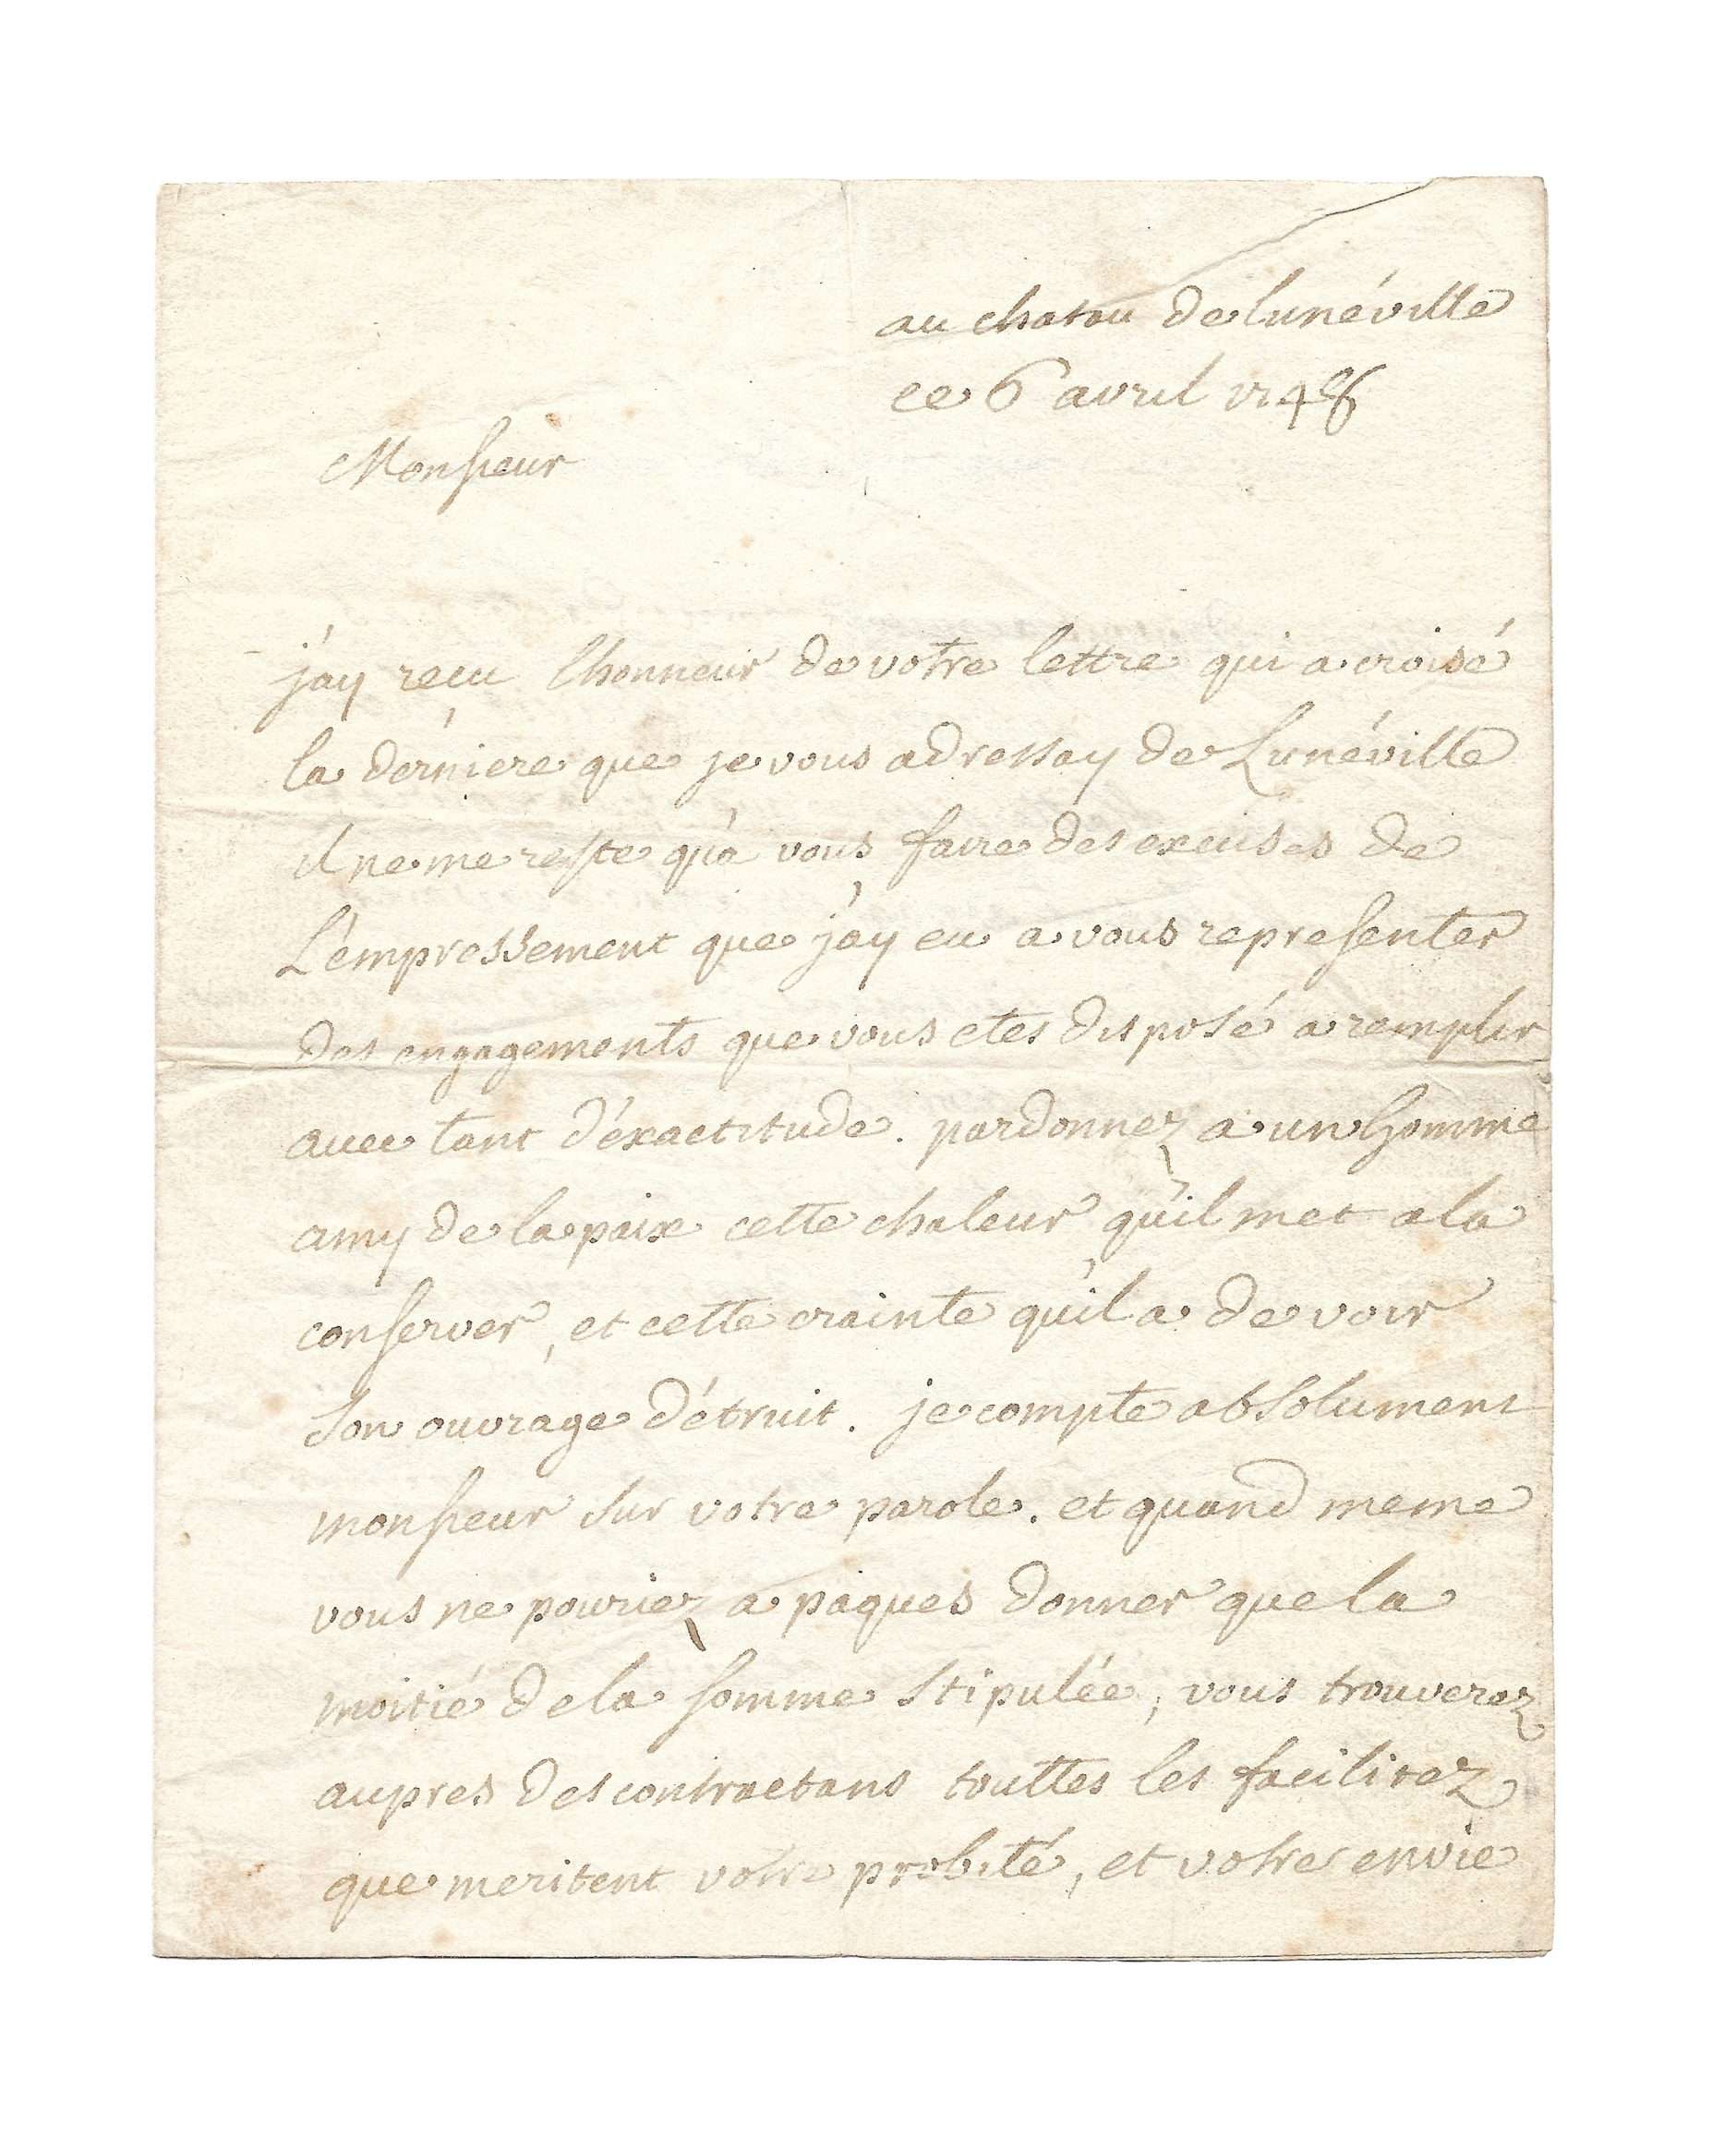 au chatau de lunéville
ce 6 avril 1748
Monsieur
j'ay recu l'honneur de votre lettre qui a croisé
la derniere que je vous adressay de Lunéville
il ne me reste qu'a vous faire des excuses de
L'empressement que j'ay eu a vous representer
des engagements que vous etes disposé a remplir
avec tant d'éxactitude. pardonnez a un homme
amy de la paix cette chaleur qu'il met a la
conserver, et cette crainte qu'il a de voir
son ouvrage détruit. je compte absolument
monsieur sur votre parole. et quand meme
vous ne pouriez a paques donner que la
moitié de la somme stipulée, vous trouverez
aupres des contractans touttes les facilitez
que meritent votre probité, et votre envie